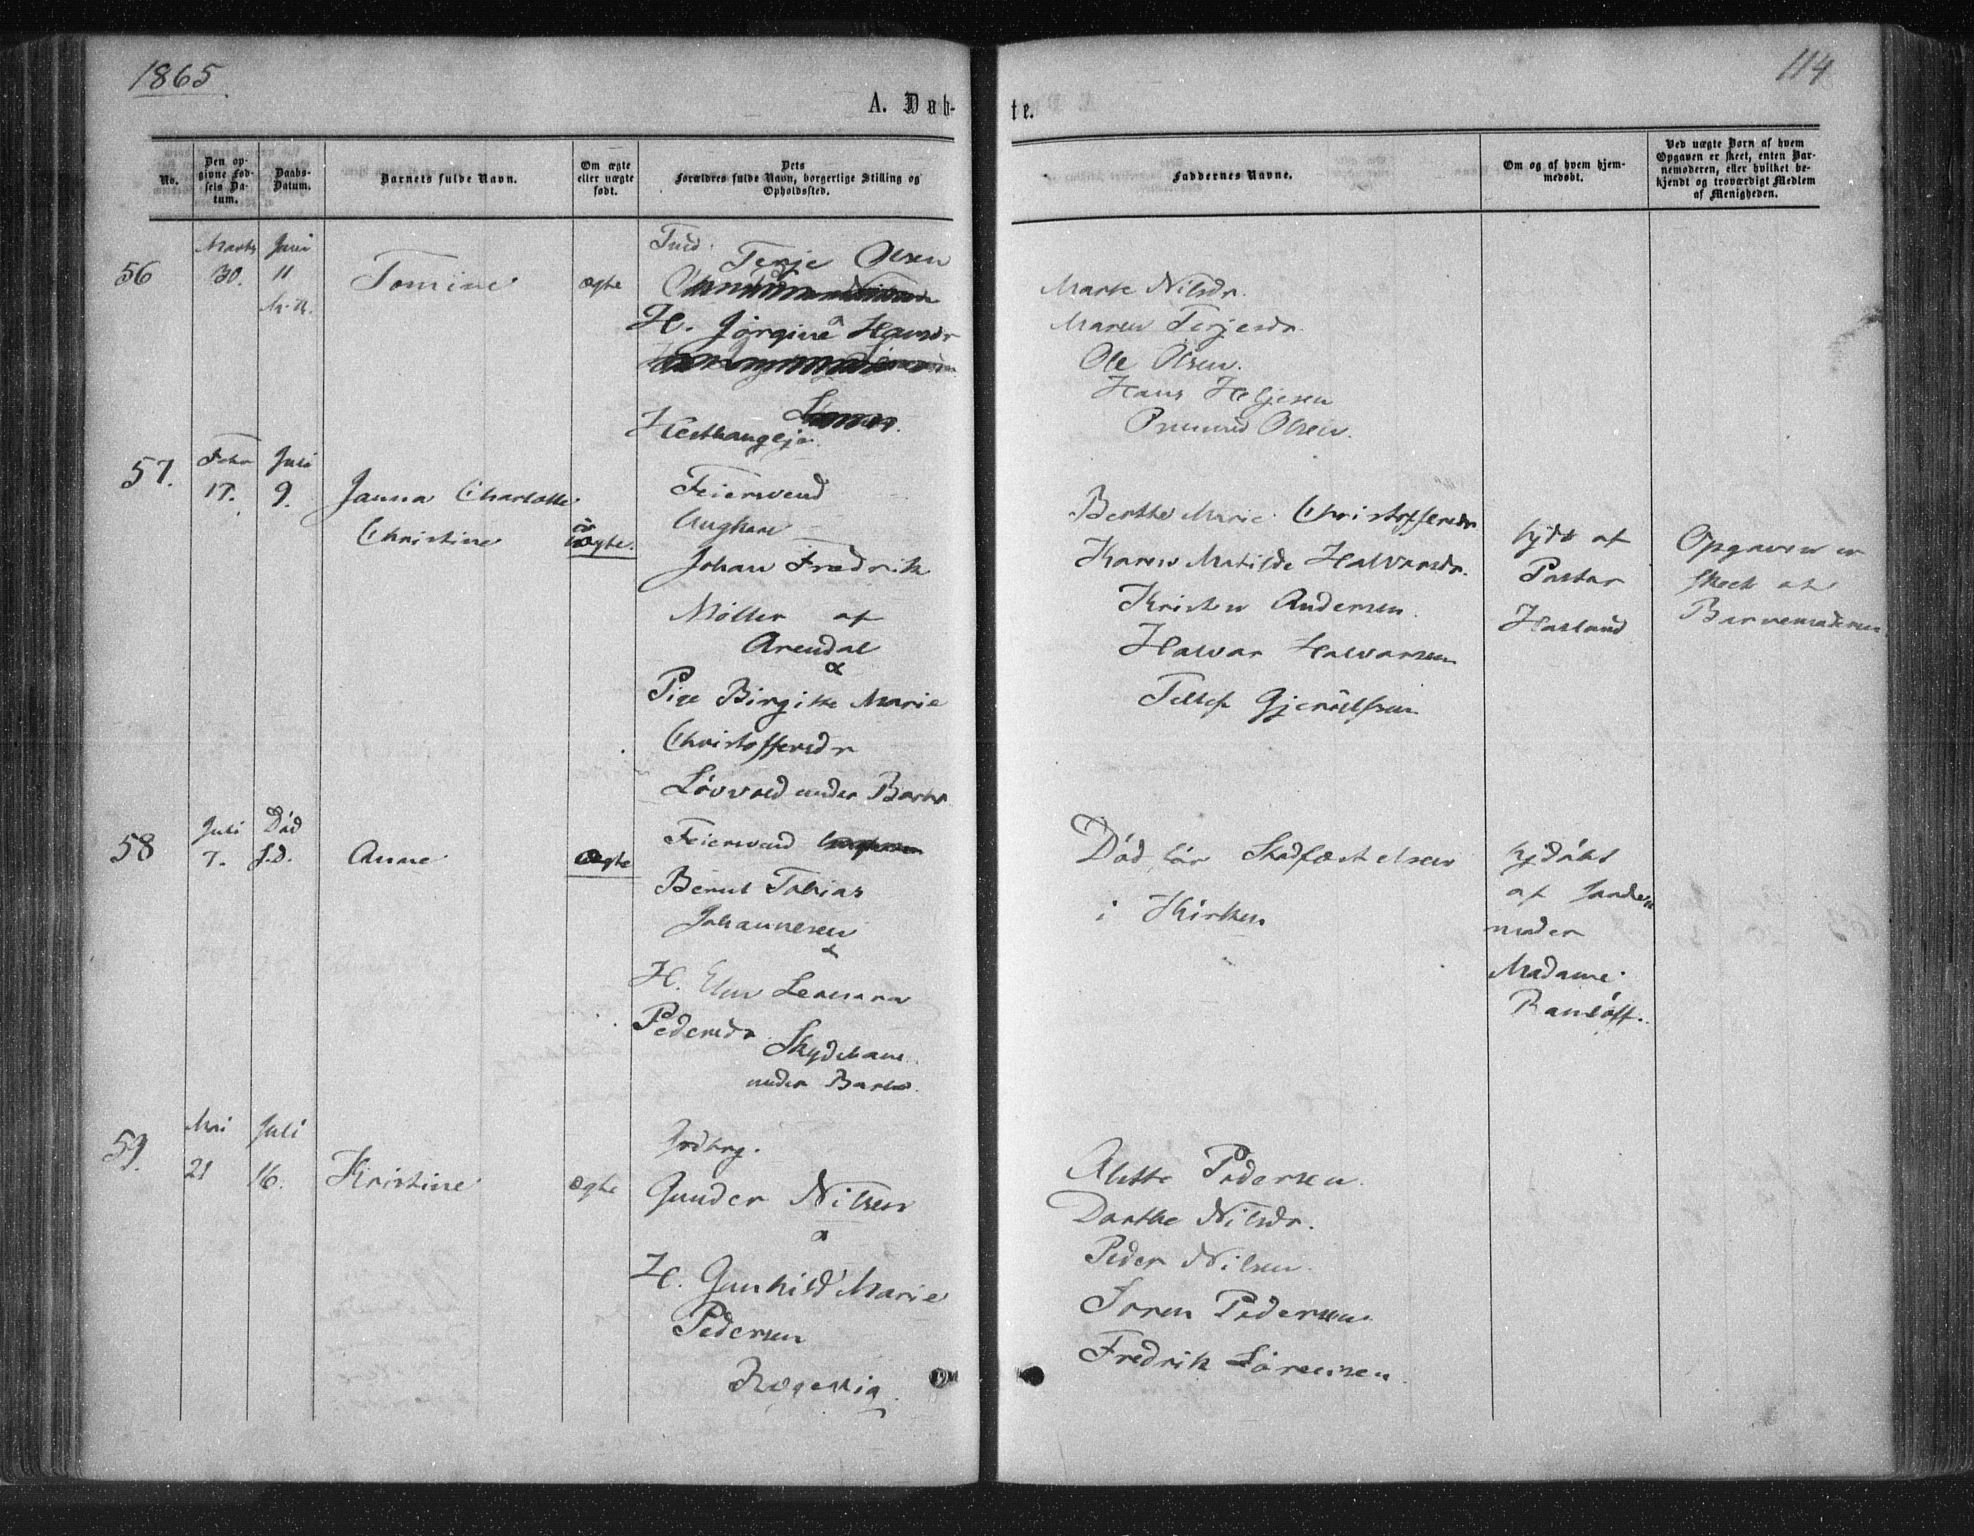 1865
114
A. Døb-
te.
No.
Den op-
givne Fød-
sels Da-
tum.
Daabs-
Datum.
Barnets fulde Navn.
Om ægte
eller uægte
født.
Dets
Forældres fulde Navn, borgerlige Stilling og
Opholdssted.
Faddernes Navne.
Om og af hvem hjem-
medøbt.
Ved uægte Børn af hvem
Opgaven er skeet, enten Bar-
nemoderen, eller hvilket be-
kjendt og troværdigt Medlem
af Menigheden.
56
Marts
30.
Juni
11
Tomine
ægte
Terje Olsen
&
H. Jørgine Hansdr
Marte Nilsdr.
Maren Terjesdr.
Ole Olsen.
Hans Heljesen
Olsen.
57.
Febr
17.
Juli
9.
Janna Charlotte
Christine
uægte.
Feiervend
Ungkarl
Johan Fredrik
Møller af
Arendal
&
Pige Birgitte Marie
Christoffersdr
Løvvold under Barbo
Berthe Marie Christoffersdr
Karen Matilde Halvorsdr.
Kristen Andersen.
Halvor Halvorsen
Tellef
hjdt af
Pastor
Hasland
Opgaven er
skeet af
Barnemoderen
58
Juli
7.
Død
s.d.
Anne
ægte
Feiervend
Bernt Tobias
Johannesen
&
H. Elen
Pedersdr
Skydebane
under Barbo.
Død før Stadfæstelsen
i Kirken
hjdøbt
af Jorde
moder
Madame
59.
Mai
21
Juli
16.
Kristine
ægte
Jordbrg.
Gunder Nilsen
&
H. Gunhild Marie
Pedersen
Alette Pedersen.
Dorthe Nilsdr.
Peder Nilsen.
Søren Pedersen
Fredrik Sørensen.